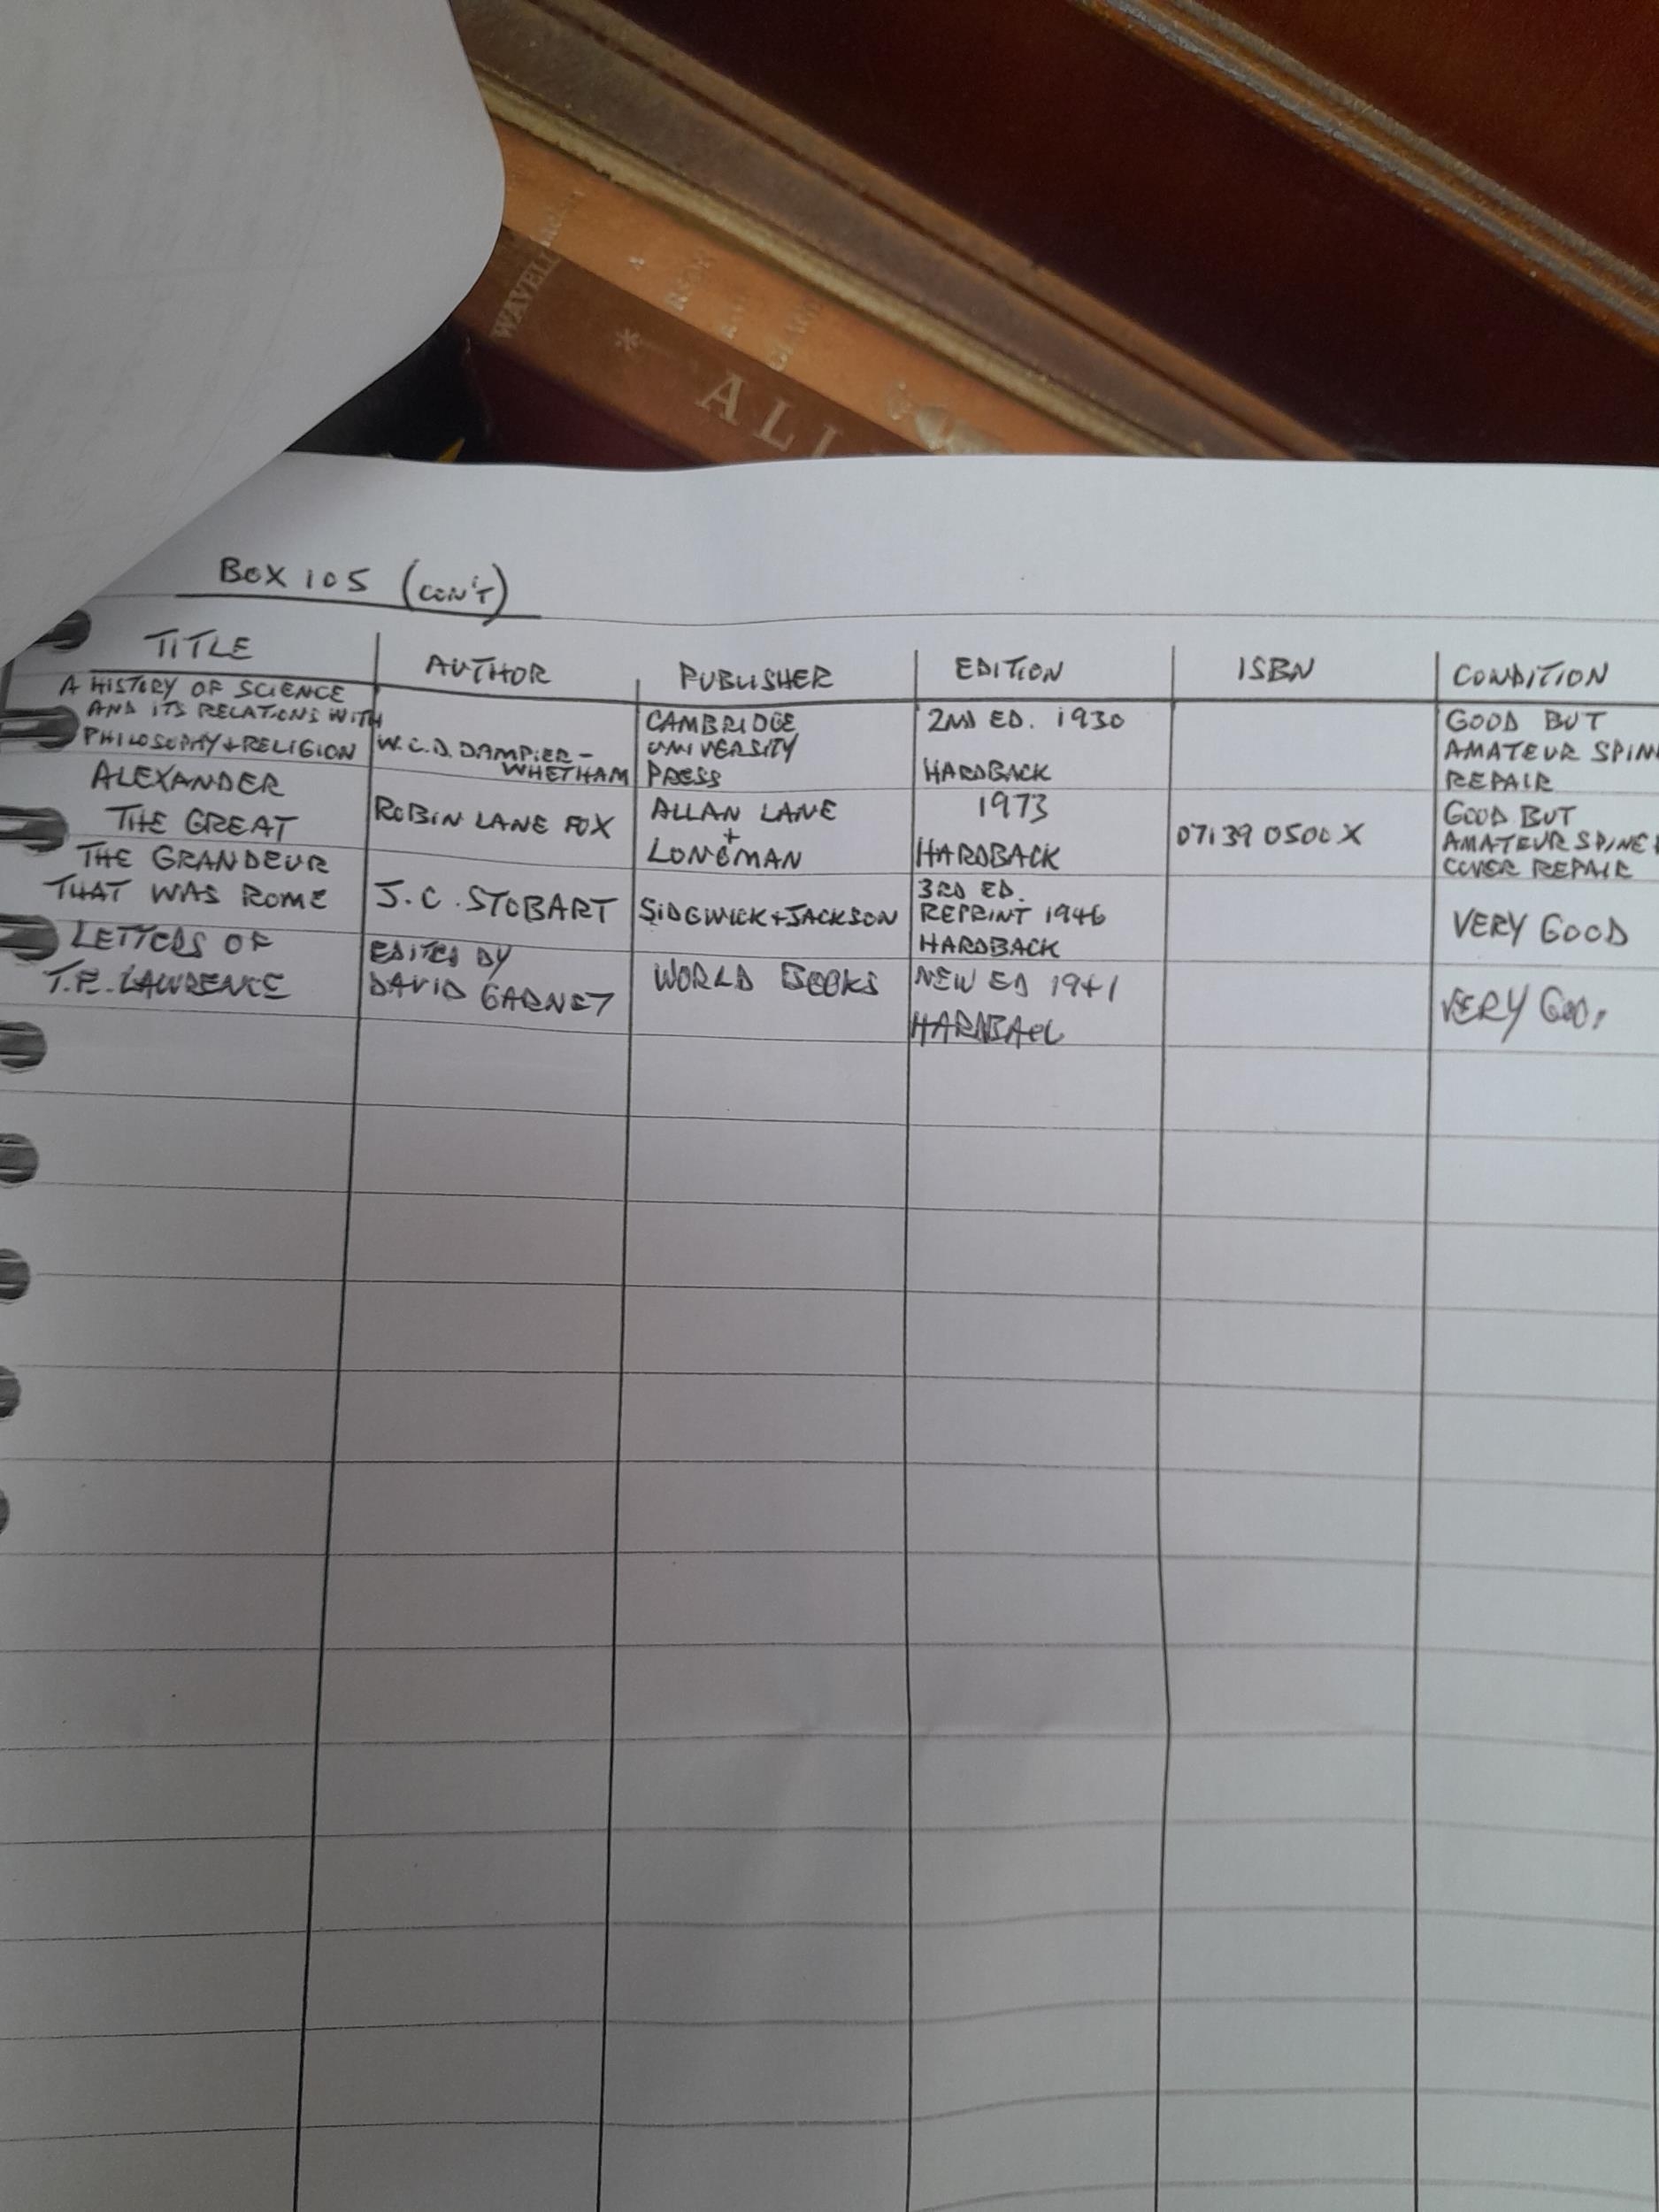 WAVELL
A
ALL
BOX 105 (CON'T)
TITLE
AUTHOR
PUBLISHER
EDITION
ISBN
CONDITION
A HISTORY OF SCIENCE
AND ITS RELATIONS WITH
PHILOSOPHY + RELIGION
W.C.D. DAMPIER-
WHETHAM
CAMBRIDGE
UNIVERSITY
PRESS
2ND ED. 1930
HARDBACK
GOOD BUT
AMATEUR SPINE
REPAIR
ALEXANDER
THE GREAT
ROBIN LANE FOX
ALLAN LANE
+
LONGMAN
1973
HARDBACK
07139 0500 X
GOOD BUT
AMATEUR SPINE +
COVER REPAIR
THE GRANDEUR
THAT WAS ROME
J.C. STOBART
SIDGWICK + JACKSON
3RD ED.
REPRINT 1946
HARDBACK
VERY GOOD
LETTERS OF
T.E. LAWRENCE
EDITED BY
DAVID GARNET
WORLD BOOKS
NEW ED 1941
HARDBACK
VERY GOOD